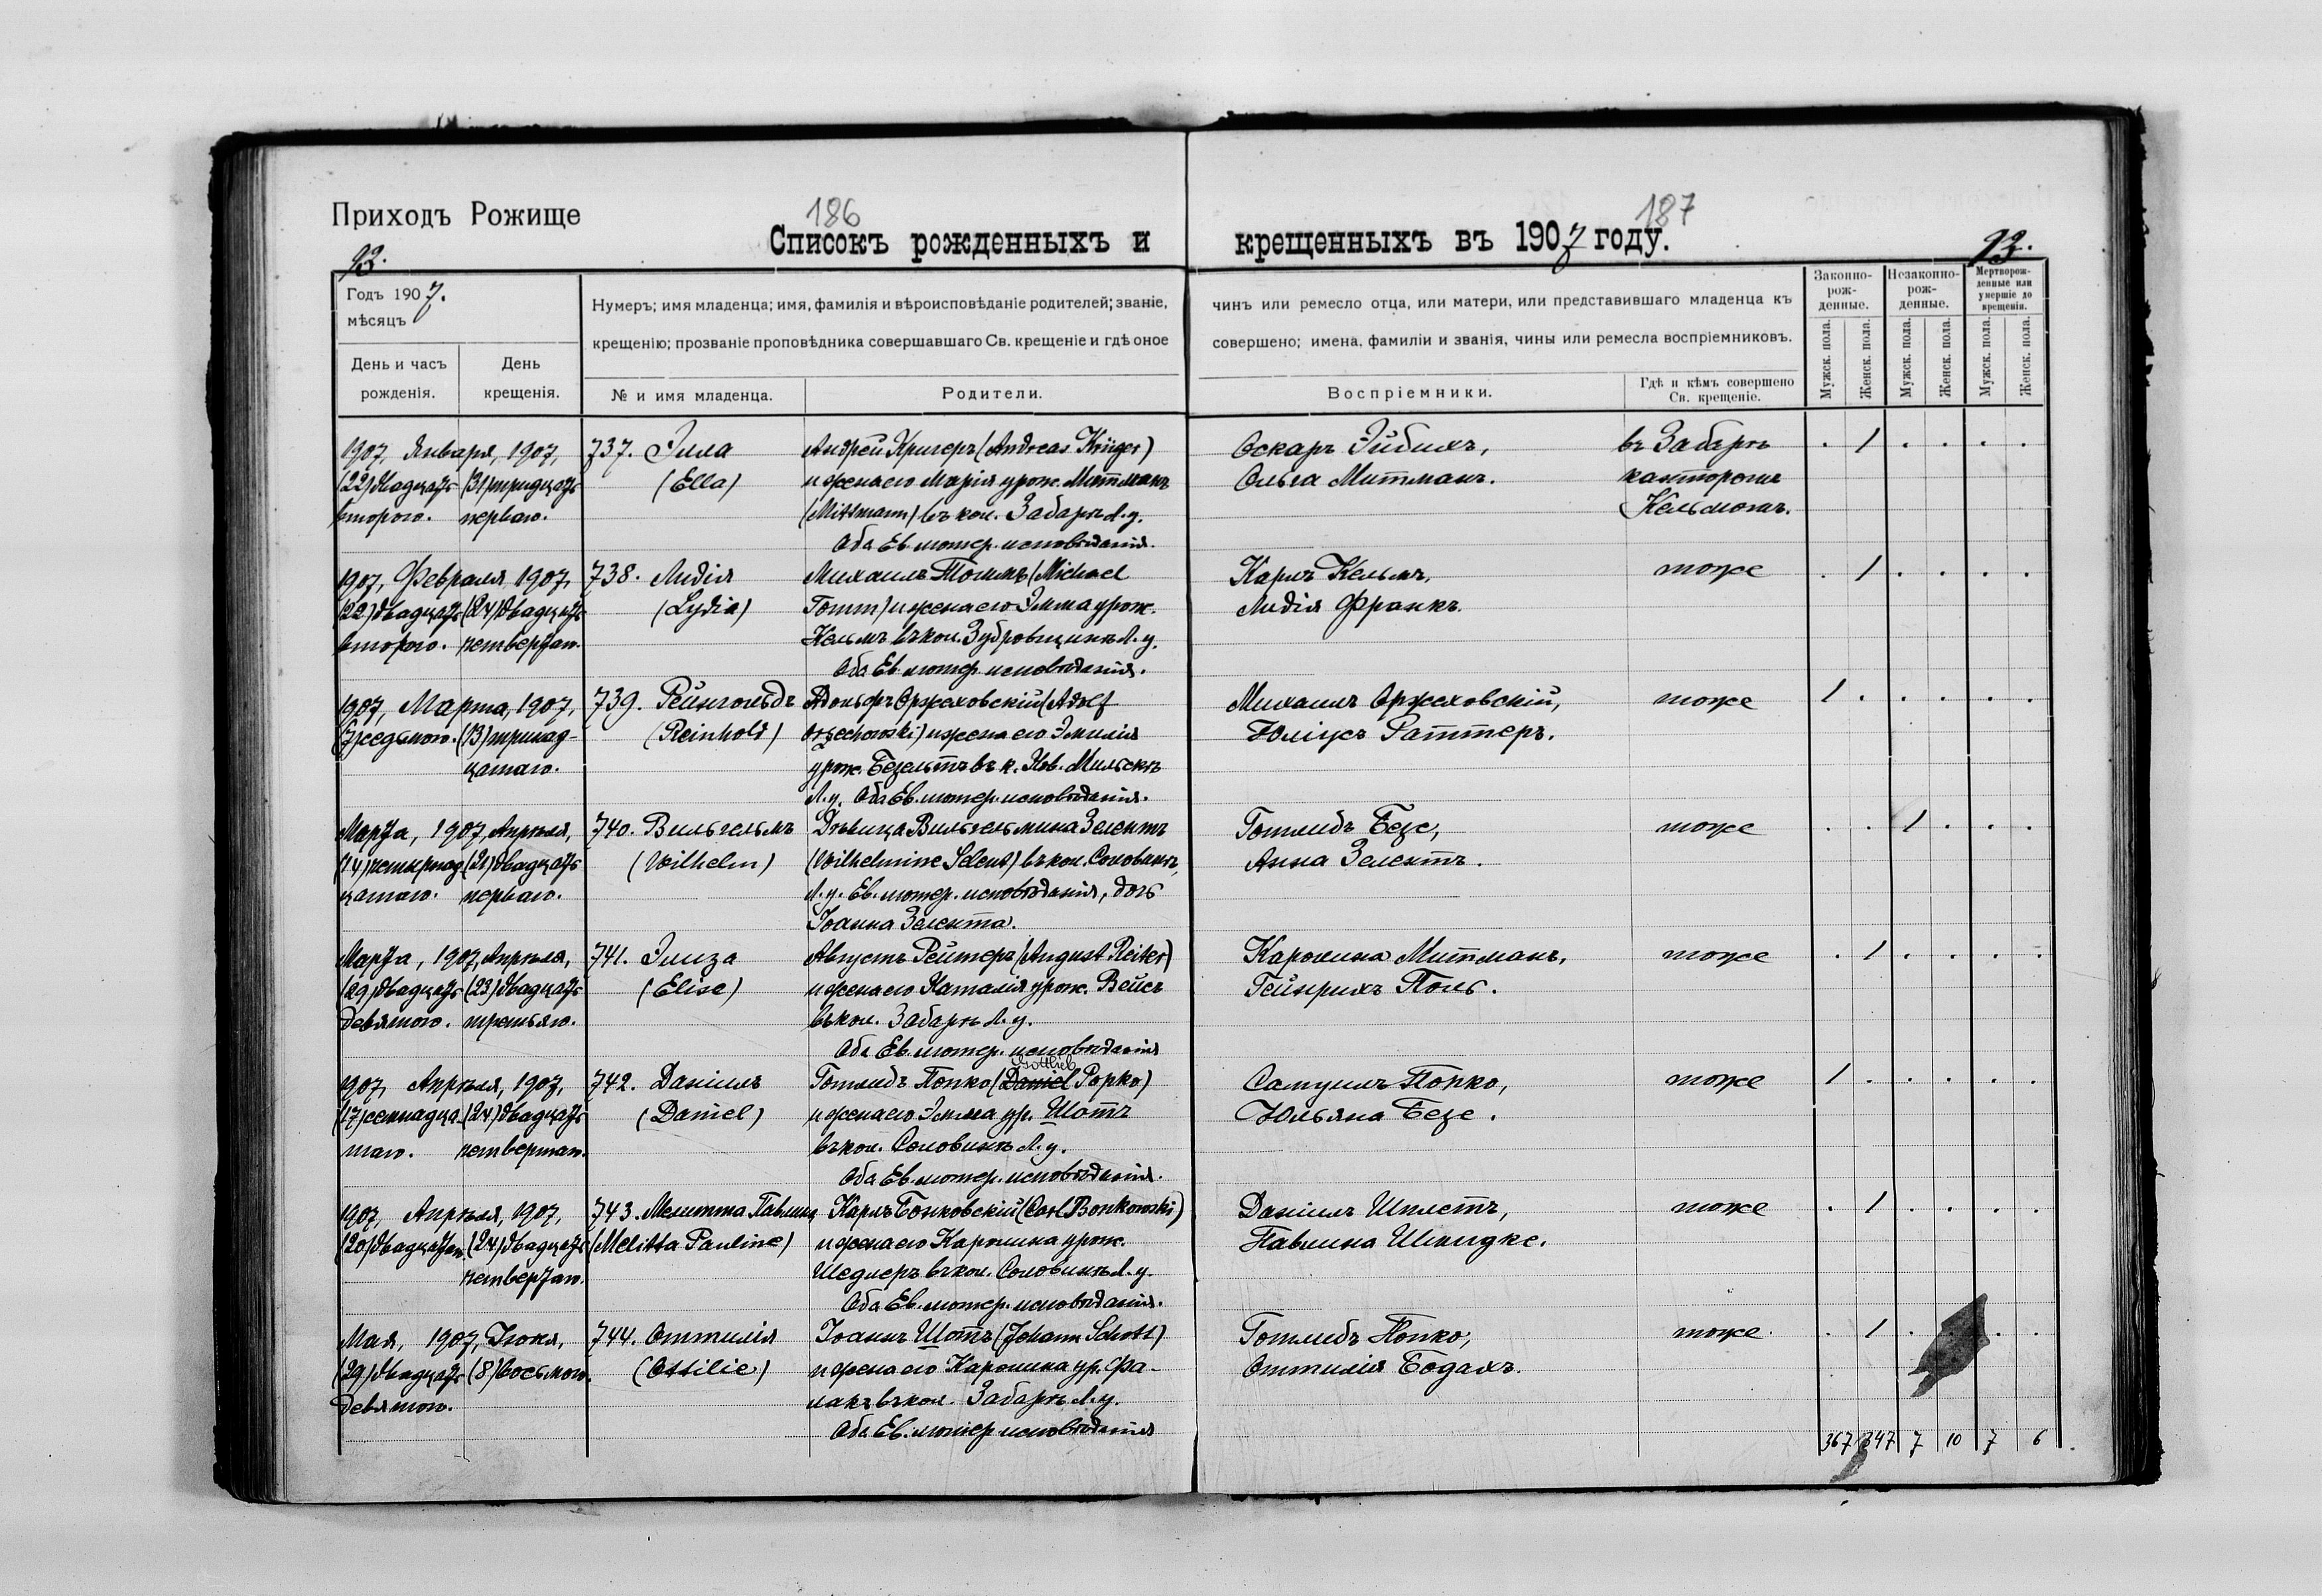 Приходъ Рожище
186
187
Списокъ рожденныхъ и крещенныхъ въ 1907 году.
93.
93.
Годъ 1907.
мѣсяцъ
День и часъ рожденія.
День крещенія.
Нумеръ; имя младенца; имя, фамилія и вѣроисповѣданіе родителей; званіе,
крещенію; прозваніе проповѣдника совершавшаго Св. крещеніе и гдѣ оное
№ и имя младенца.
Родители.
чинъ или ремесло отца, или матери, или представившаго младенца къ
совершено; имена, фамиліи и званія, чины или ремесла воспріемниковъ.
Воспріемники.
Гдѣ и кѣмъ совершено
Св. крещеніе.
Законно-
рож-
денные.
Незаконно-
рож-
денные.
Мертворож-
денные или
умершіе до
крещенія.
Мужск. пола.
Женск. пола.
Мужск. пола.
Женск. пола.
Мужск. пола.
Женск. пола.
1907, Января, 1907, 737. Элла Андрей Кригеръ (Andreas Krüger) Оскаръ Эйбихъ, въ Забарѣ . 1 . . . .
(22) двадцать (31) тридцать (Ella) и жена его Марія урож. Митманъ Ольга Митманъ. канторомъ
второго. перваго. (Mittmann) въ кол. Забарѣ Л. у. Кельмомъ.
Оба Ев. лютер. исповѣданія.
1907, Февраля 1907, 738. Лидія Михаилъ (Michael Карлъ Кельмъ, тоже . 1 . . . .
(22) двадцать (24) двадцать (Lydia) и жена его Эмма урож. Лидія Франкъ.
второго. четвертаго. Кельмъ въ кол. Зубровщинѣ Л. у.
Оба Ев. лютер. исповѣданія.
1907, Марта, 1907, 739. Рейнгольдъ Адольфъ Оржеховскій (Adolf Михаилъ Оржеховскій, тоже 1 . . . . .
(7) седьмого. (13) тринад- (Reinhold) Orzechowski) и жена его Эмилія Юліусъ Раттеръ.
цатаго. урож. въ к. Нов. Мильскѣ
Л. у. Оба Ев. лютер. исповѣданія.
Марта, 1907, Апрѣля, 740. Вильгельмъ Дѣвица Вильгельмина Зелентъ Готлибъ Безе, тоже . . 1 . . .
(14) четырнад- (21) двадцать (Wilhelm) (Wilhelmine Selent) въ кол. Соловинѣ, Анна Зелентъ.
цатаго. перваго. Л. у. Ев. лютер. исповѣданія, дочь
Іоанна Зелента.
Марта, 1907, Апрѣля, 741. Элиза Августъ Рейтеръ (August Reiter) Каролина Митманъ, тоже . 1 . . . .
(29) двадцать (23) двадцать (Elise) и жена его Наталія урож. Вейсъ Гейнрихъ Поль.
девятого. третьяго. въ кол. Забарѣ Л. у.
Оба Ев. лютер. исповѣданія
Gottlieb
1907, Апрѣля, 1907, 742. Даніилъ Готлибъ Попко (Daniel Popko) Самуилъ Попко, тоже 1 . . . . .
(17) семнадца- (24) двадцать (Daniel) и жена его Эмма ур. Шотъ Юльяна Безе.
таго. четвертаго. въ кол. Соловинѣ Л. у.
Оба Ев. лютер. исповѣданія.
1907, Апрѣля, 1907, 743. Мелитта Павлина Карлъ Бонковскій (Carl Bonkowski) Даніилъ тоже . 1 . . . .
(20) двадцатаго (24) двадцать (Melitta Pauline) и жена его Каролина урож. Павлина Шмидке.
четвертаго. Шедлеръ въ кол. Соловинѣ Л. у.
Оба Ев. лютер. исповѣданія.
Мая, 1907, Іюня, 744. Оттилія Іоаннъ Шотъ (Johann Schott) Готлибъ Попко, тоже. . 1 . . .
(29) двадцать (8) восьмого. (Ottilie) и жена его Каролина ур. Фа- Оттилія Бодахъ.
девятого. лакъ въ кол. Забарѣ Л. у.
Оба Ев. лютер. исповѣданія
367 347 7 10 7 6